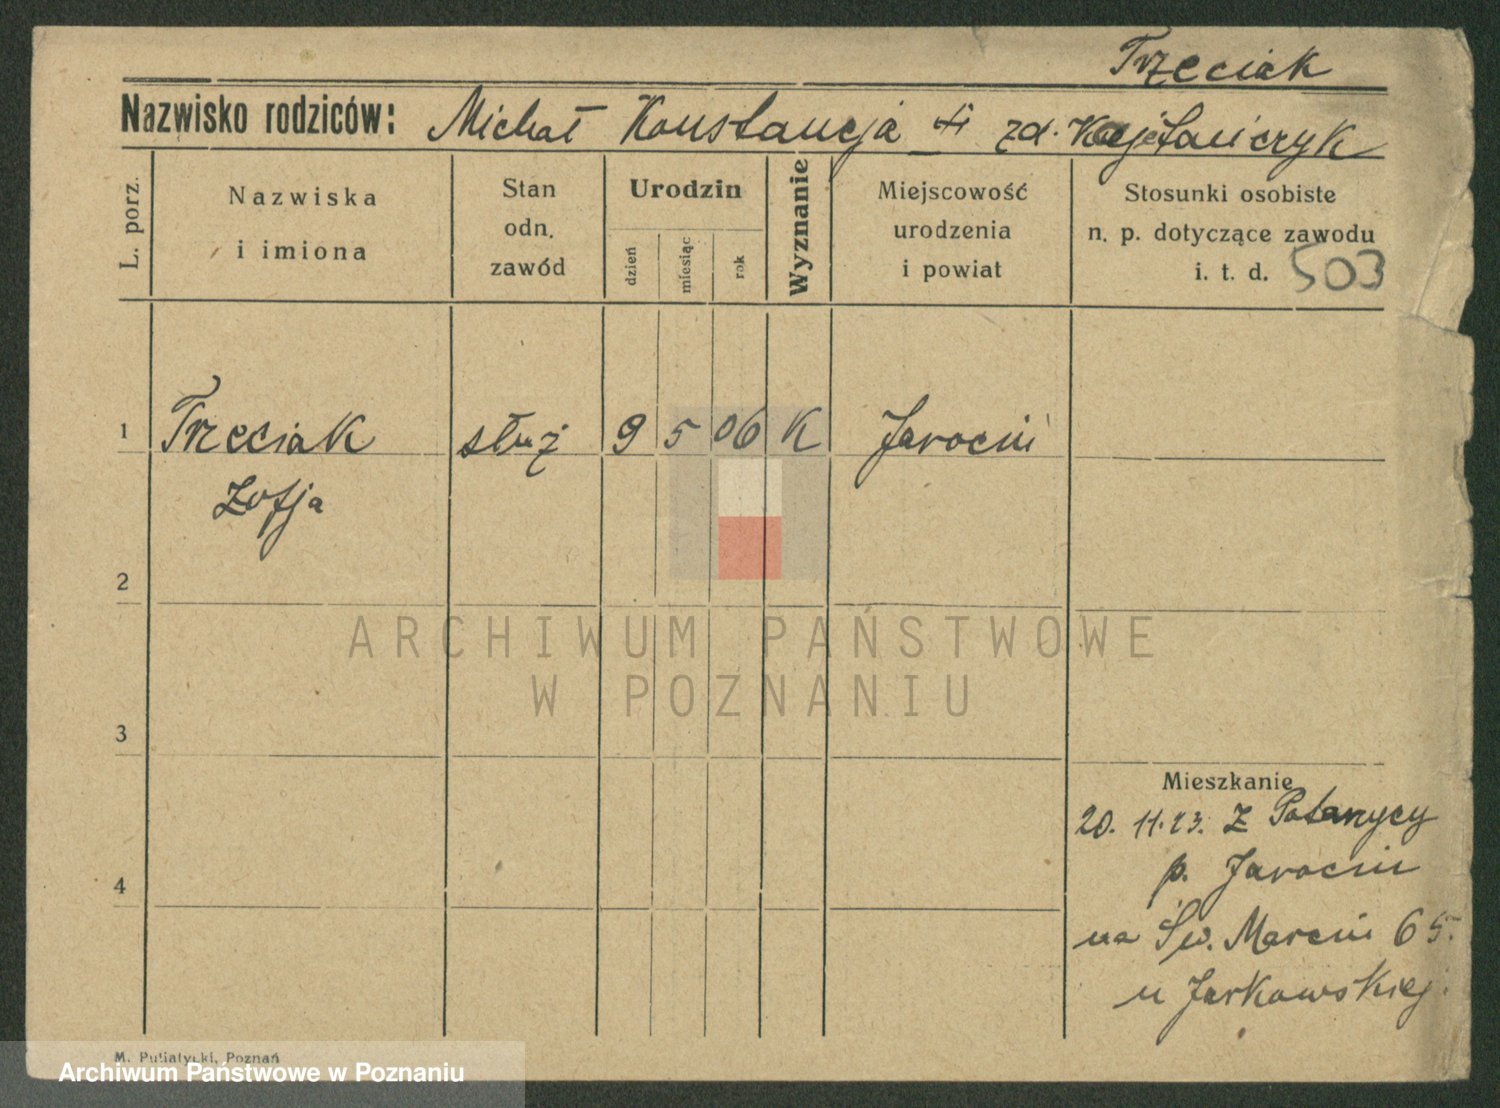 Trzeciak
Nazwisko rodziców: Michał Konstancja zd. Kajetańczyk
L. porz.
Nazwiska
i imiona
Stan
odn.
zawód
Urodzin
dzień
miesiąc
rok
Wyznanie
Miejscowość
urodzenia
i powiat
Stosunki osobiste
n. p. dotyczące zawodu
i. t. d. 503
1 Trzeciak służ 9 5 06 K Jarocin
Zofja
2
3
4
ARCHIWUM PAŃSTWOWE
W POZNANIU
Mieszkanie
20. 11. 23. Z Potarzycy
p. Jarocin
na Św. Marcin 65.
u Jarkowskiej.
M. Putiatycki, Poznań
Archiwum Państwowe w Poznaniu